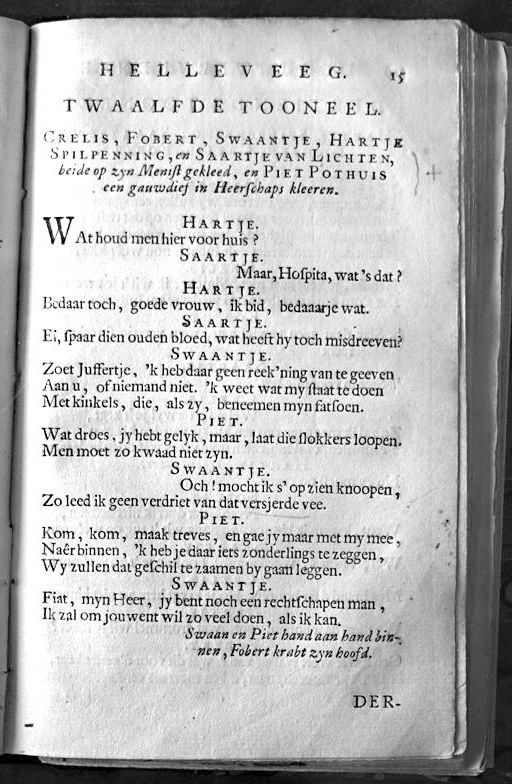 HELLEVEEG. 15
TWAALFDE TOONEEL.
CRELIS, FOBERT, SWAANTJE, HARTJE
SPILPENNING, en SAARTJE VAN LICHTEN,
beide op zyn Menist gekleed, en PIET POTHUIS
een gauwdief in Heerschaps kleeren.
HARTJE.
WAt houd men hier voor huis?
SAARTJE.
Maar, Hospita, wat 's dat?
HARTJE.
Bedaar toch, goede vrouw, ik bid, bedaaarje wat.
SAARTJE.
Ei, spaar dien ouden bloed, wat heeft hy toch misdreeven?
SWAANTJE.
Zoet Juffertje, 'k heb daar geen reek'ning van te geeven
Aan u, of niemand niet. 'k weet wat my staat te doen
Met kinkels, die, als zy, beneemen myn fatsoen.
PIET.
Wat droes, jy hebt gelyk, maar, laat die slokkers loopen.
Men moet zo kwaad niet zyn.
SWAANTJE.
Och! mocht ik s' op zien knoopen,
Zo leed ik geen verdriet van dat versjerde vee.
PIET.
Kom, kom, maak treves, en gae jy maar met my mee,
Naêr binnen, 'k heb je daar iets zonderlings te zeggen,
Wy zullen dat geschil te zaamen by gaan leggen.
SWAANTJE.
Fiat, myn Heer, jy bent noch een rechtschapen man,
Ik zal om jouwent wil zo veel doen, als ik kan.
Swaan en Piet hand aan hand bin-
nen, Fobert krabt zyn hoofd.
DER-